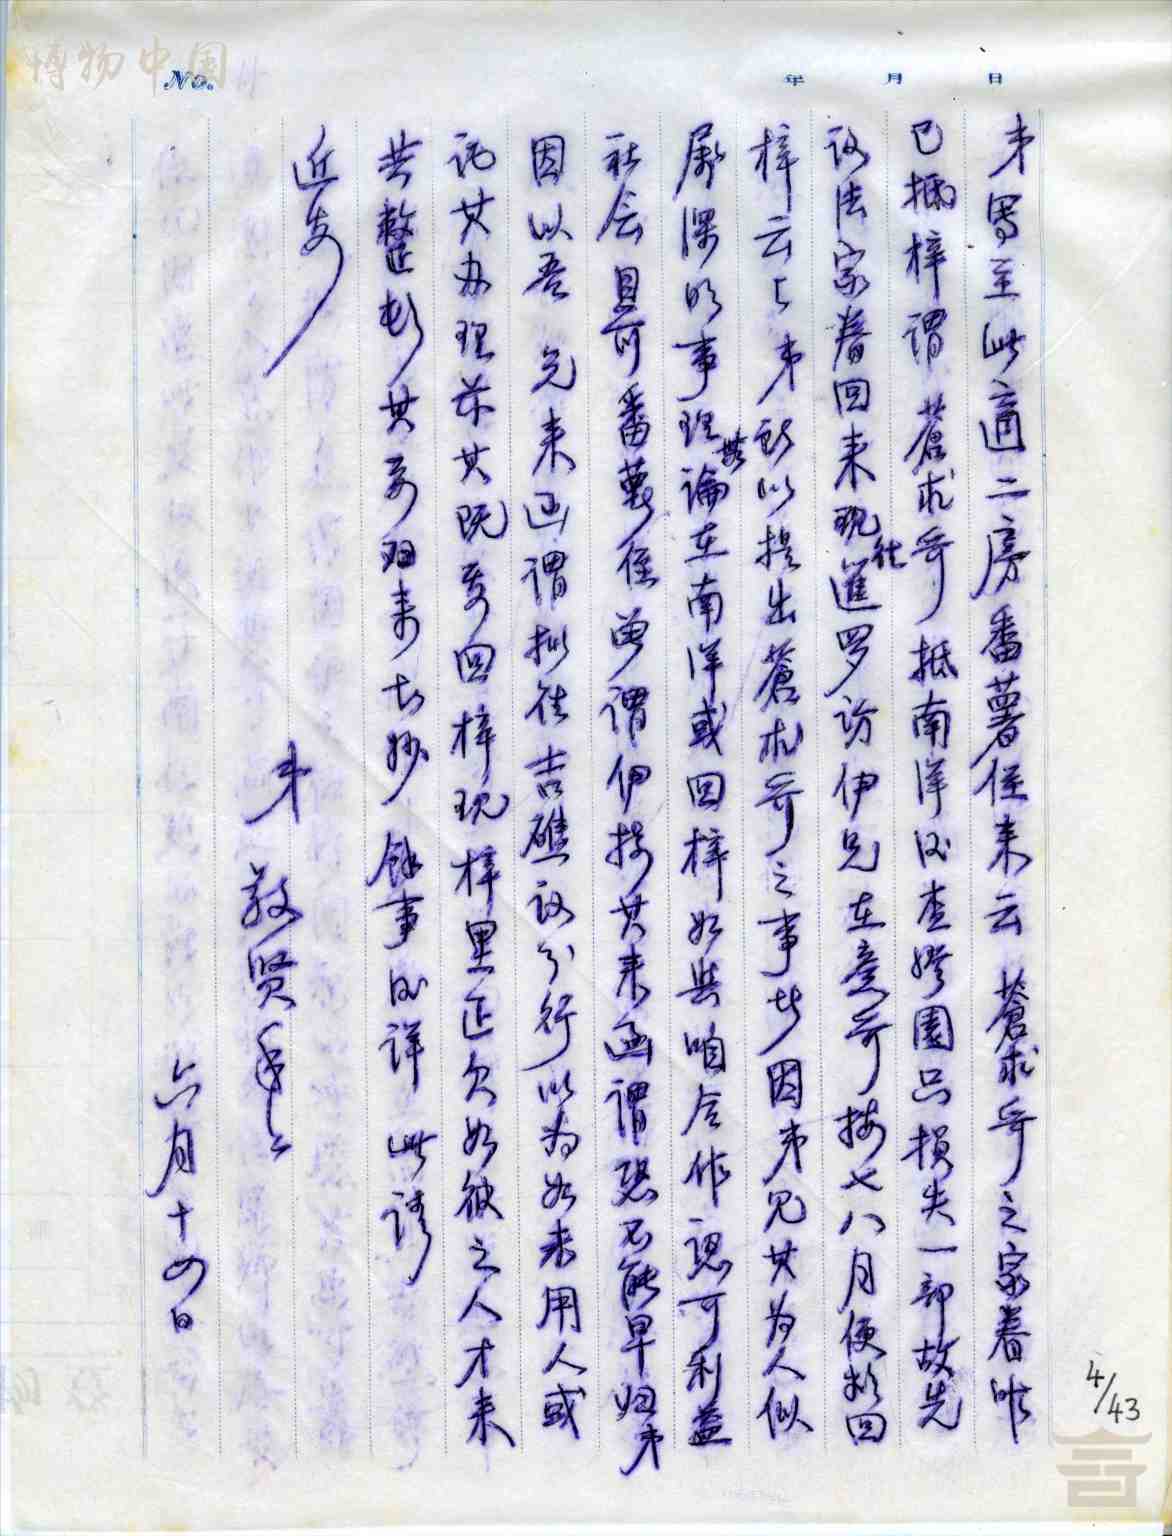 博物中国
No.
年 月 日
弟写至此適二房番薯侄来云 蒼求哥之家眷昨
已抵梓谓 蒼求哥抵南洋后查胶園只損失一部故先
设法家眷回来现往暹罗访伊兄在意哥按七八月便拟回
梓云云弟所以提出蒼求哥之事者因弟见其为人似
属深明事理無論在南洋或回梓如与咱合作認可利益
社会且可番薯侄曾谓伊接其来函谓恐不能早归弟
因以吾 兄来函谓拟往吉礁设分行以为如未用人或
託其办理亦其既要回梓现梓里正欠如彼之人才来
共整彰其要归来也妙 餘事后详 此請
近安
弟 敬贤手上
六月十四日
4/43